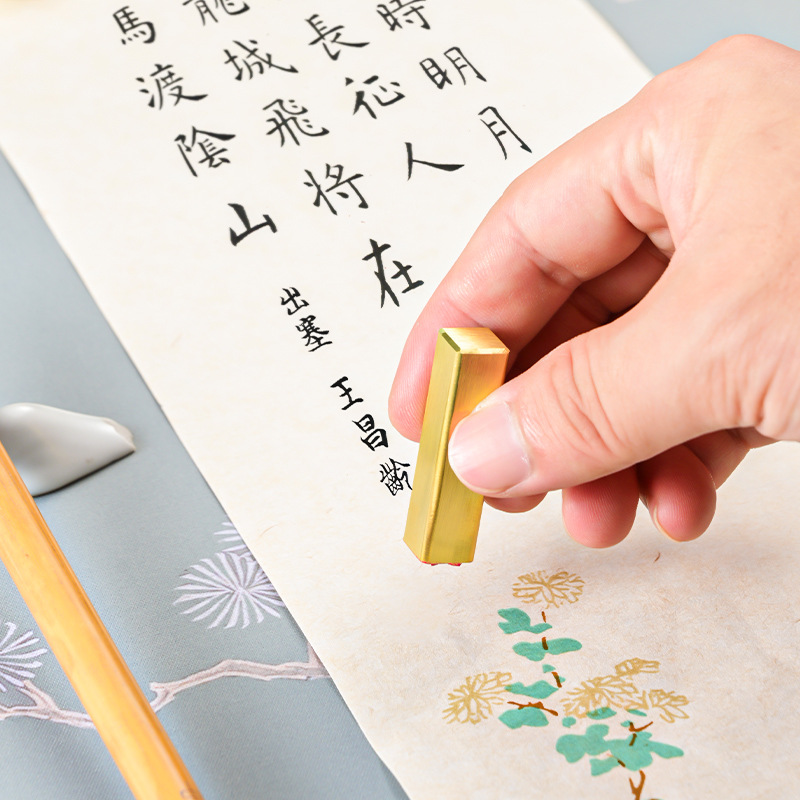 時明月
長征人
龍城飛將在
馬渡陰山
出塞 王昌齡